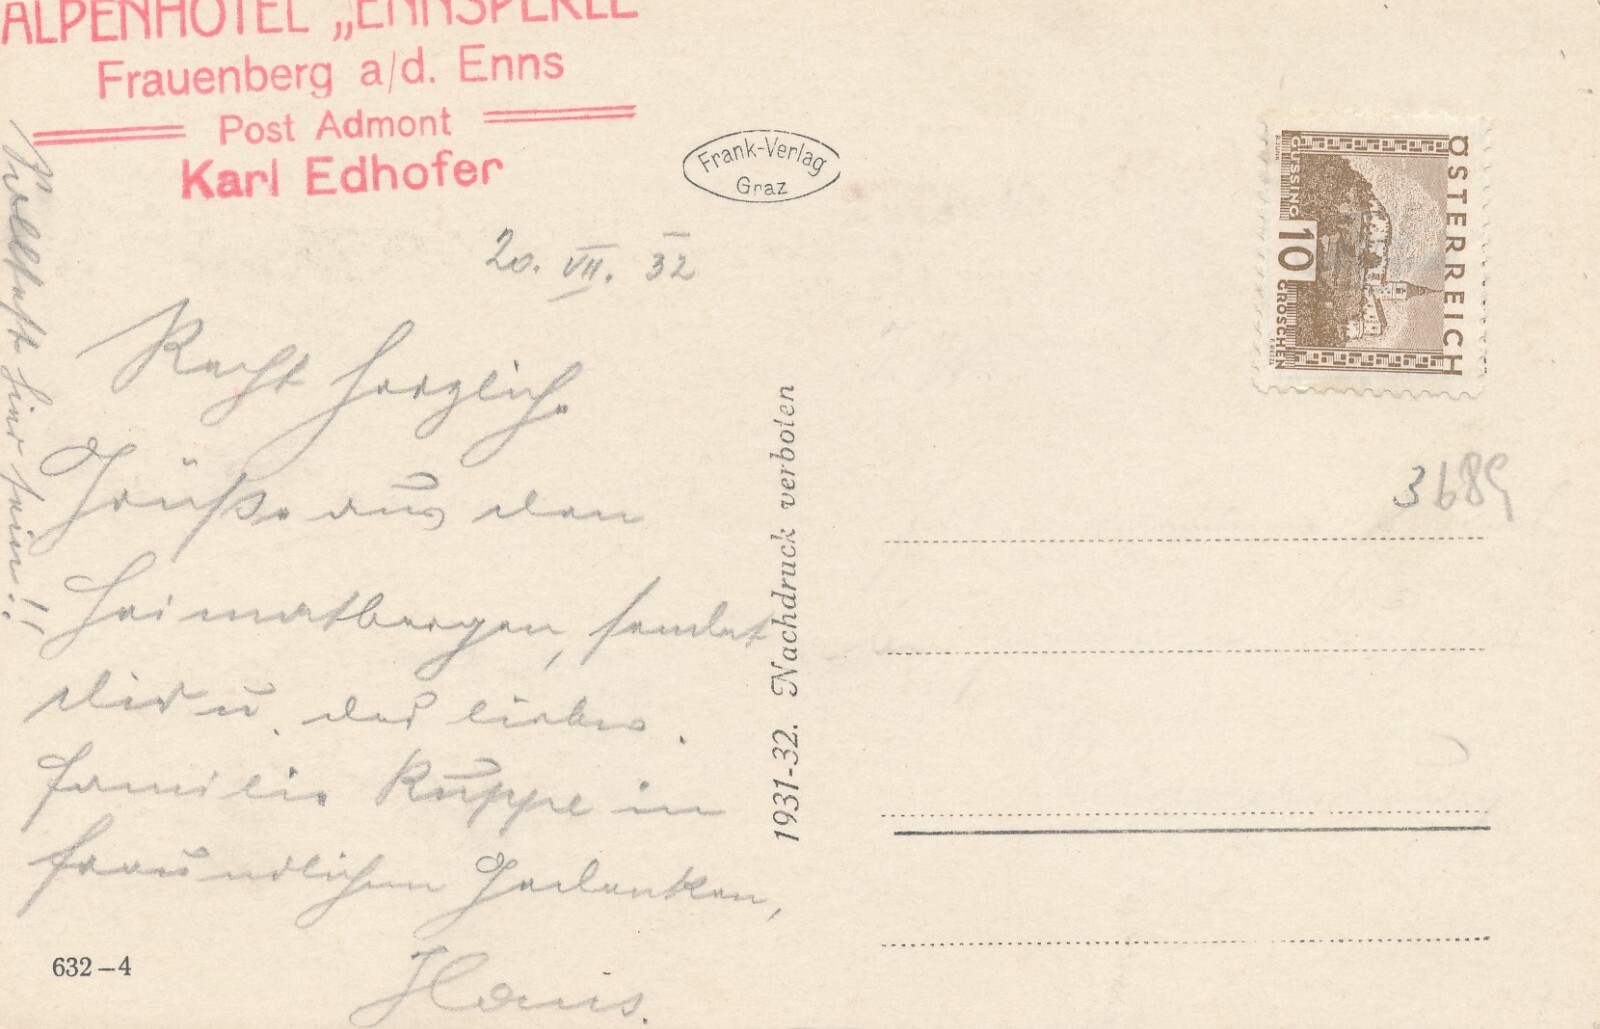 ALPENHOTEL „ENNSPERLE
Frauenberg a/d. Enns
Post Admont
Karl Edhofer
Frank-Verlag
Graz
ÖSTERREICH
GÜSSING
10
GROSCHEN
20. VII. 32
Recht herzliche
Grüße aus den
Heimatbergen, sendet
Dir u. der lieben
Familie Ruppe in
freundlichem Gedenken,
Hans.
hier sein!!
1931-32. Nachdruck verboten
3689
632-4